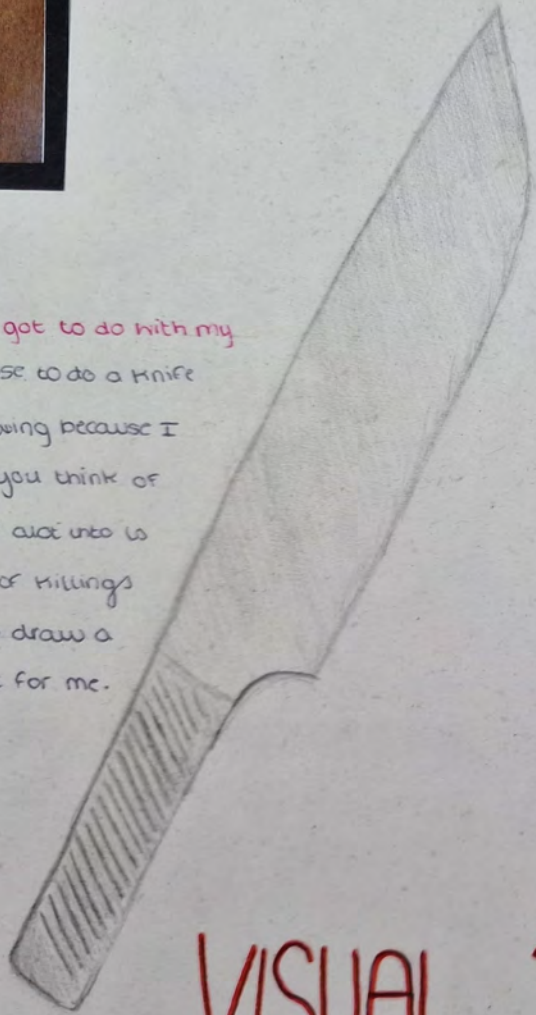 got to do with my
se to do a knife
wing because I
you think of
into is
of killings
draw a
for me.
VISUAL